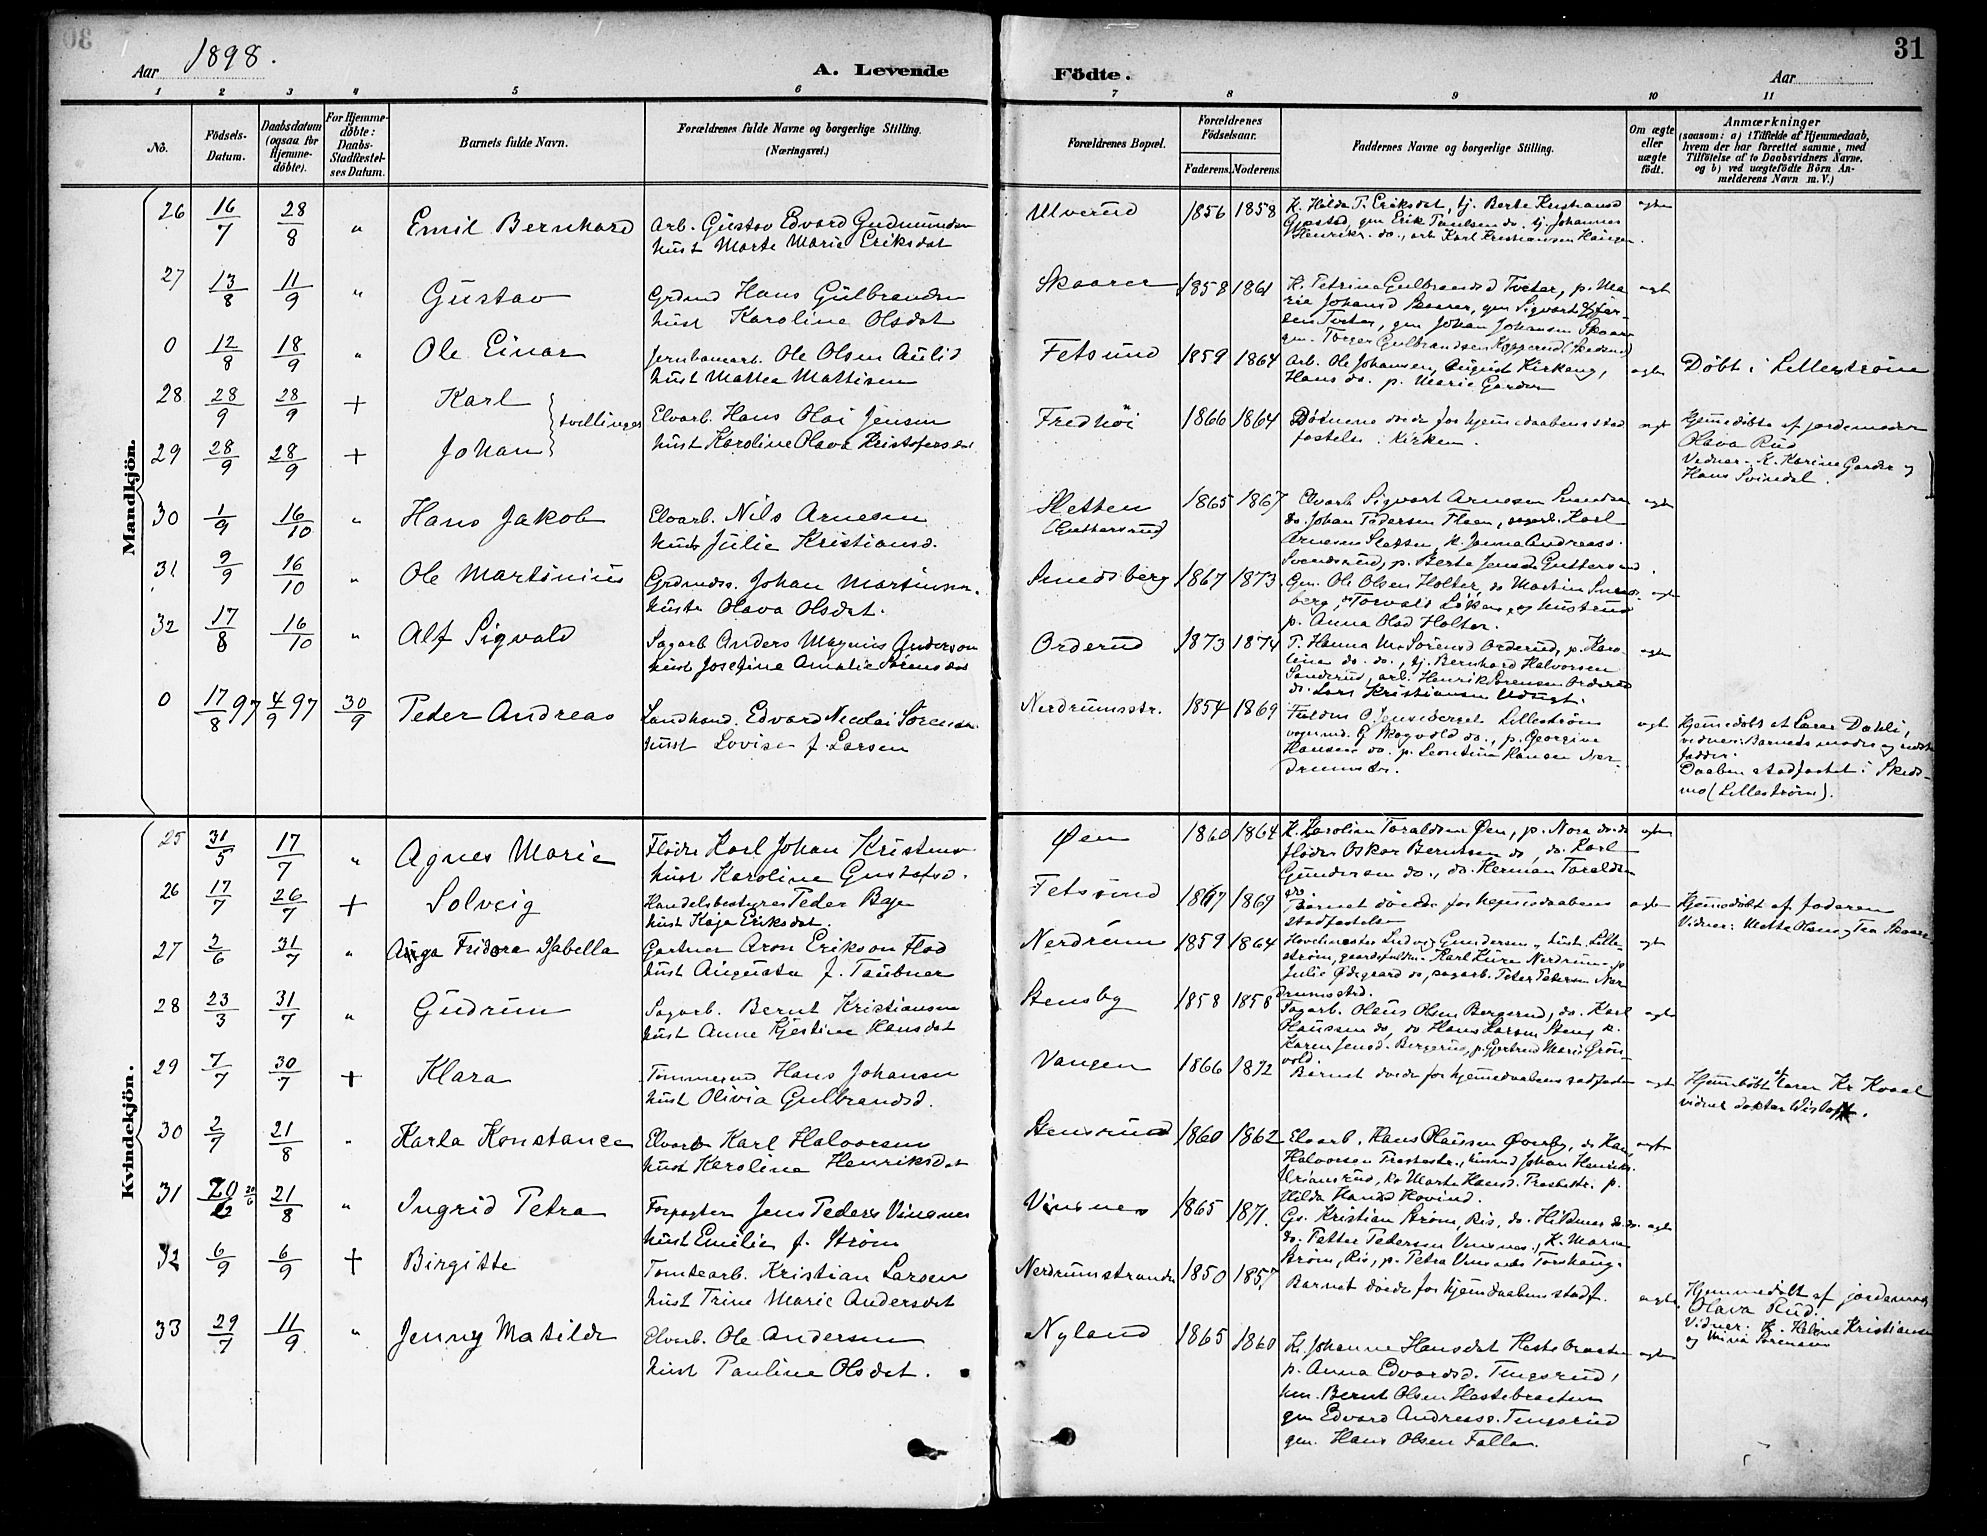 30
31
Aar 1898.
A. Levende
Födte.
Aar
1 2 3 4 5 6 7 8 9 10 11
No.
Födsels-Datum.
Daabsdatum (ogsaa for Hjemme-döbte).
For Hjemme-döbte: Daabs-Stadfæstel-ses Datum.
Barnets fulde Navn.
Forældrenes fulde Navne og borgerlige Stilling.
(Næringsvei.)
Forældrenes Bopæl.
Forældrenes Födselsaar.
Faderens. Moderens.
Faddernes Navne og borgerlige Stilling.
Om ægte eller uægte födt.
Anmærkninger
(saasom: a) i Tilfælde af Hjemmedaab,
hvem der har forrettet samme, med
Tilföielse af to Daabsvidners Navne,
og b) ved uægtefödte Börn An-
melderens Navn m. V.)
Mandkjön.
26 16/7 28/8 " Emil Bernhard Arb. Gustav Edvard Gudmundsen
hust Marte Marie Eriksdat
Ulverud 1856 1858 K. Hilda T. Eriksdat, tj. Berte Kristiansd
Gjøstad, gm Erik Paulsen do. tj Johannes
Henrikr. do., arb Karl Kristiansen Haugen.
ægte
27 13/8 11/9 " Gustav Grdmd Hans Gulbrandsen
hust Karoline Olsdat
Skaarer 1858 1861 K. Petrine Gulbrandsd Tveter, p. Ma
rie Johansd Skaarer, gm Sigvart
Tveter, gm Johan Johansen Skaarer
gm. Torger Gulbrandsen Kopperud (Skedsmo)
ægt
0 12/8 18/9 " Ole Einar Jernbanearb. Ole Olsen Aulid
hust Mattea Mattisen
Fetsund 1859 1864 Arb. Ole Johansen, August Kirkeng,
Hans do. p. Marie Garder
ægte Døbt i Lillestrøm
28 28/9 28/9 + Karl
tvillinger
29 28/9 28/9 + Johan
Elvarb. Hans Olai Jensen
hust Karoline Olava Kristofersdat
Fredhöi 1866 1864 Børnene døde før hjemmedaabens stad
fæstelse i Kirken.
ægt Hjemmedøbte af jordemoder
Olava Rud
Vidner. K. Karine Garder og
Hans Svindal.
30 1/9 16/10 " Hans Jakob Elvarb. Nils Arnesen
hust Julie Kristiansd.
Sletten
(Guttersrud)
1865 1867 Elvarb Sigvart Arnesen Svendsen
do. Johan Pedersen Floen, sagarb. Karl
Arnesen Sletten, K. Janna Andreass.
Svendsrud, p. Berta Jensd. Guttersrud.
ægt
31 9/9 16/10 " Ole Martinius Grdmds. Johan Martinsen.
hustr Olava Olsdat.
Smedsberg 1867 1873 Gm. Ole Olsen Holter, do Martin Smeds-
berg, Torvald Løken,
p. Anna Olsd Holter.
ægt
32 17/8 16/10 " Alf Sigvald Sagarb Anders Magnus Anderson
hust Josefine Amalie Sörensdat
Orderud 1873 1874 P. Hanna Ma Sörensd Orderud, p. Karo-
lina do. do., tj. Bernhard Halvorsen
Sanderud, arb. Henrik Sorensen Orderud
do. Lars Kristiansen
ægte
0 17/8 97 4/9 97 30/9 Peder Andreas Landhand. Edvard Nicolai Sörensen
hust Lovise f. Larsen
Nerdrumsstr. 1854 1869
Lillestrøm
Skogvold do., p. Georgine
Hansen do. p. Leontine Hansen Ner-
drumstr.
ægt Hjemmedøbt af Lærer Dahli,
vidner: Barnets moder og
fadder.
Daaben stadfæstet i Skeds-
mo (Lillestrøm).
Kvindekjön.
25 31/5 17/7 " Agnes Marie Fløder Karl Johan Kristens.
hust Karoline Gustafsd.
Øen 1860 1864 K. Karolian Taraldsen Øen, p. Nora do. do
fløder Oskar Berntsen do, do. Karl
Gundersen do., do. Herman Taraldsen
do.
ægte
26 17/7 26/7 + Solveig Handelsbestyrer Peder Bye
hust Kaja Eriksdat.
Fetsund 1867 1869 Barnet døde før hjemmedaabens
stadfæstelse
ægte Hjemmedøbt af faderen
Vidner: Mette Olsen og Tea Skaarer
27 2/6 31/7 " Auga Fridora Isabella Gartner Aron Erikson Flod
hust Augusta f. Taubner
Nerdrum 1859 1864 Hovelmester Ludvig Gundersen og hust. Lille-
strøm, Karl Nerdrum. p
Julie Ødegaard do, sagarb. Peter Petersen Ner
drumstrd.
ægt
28 23/3 31/7 " Gudrun Sagarb. Bernt Kristiansen
hust Anne Kjestine Hansdat
Stensby 1858 1858 Sagarb. Olaus Olsen Bergerud, do. Karl
Olaussen do, do Hans Larsen Steng, K.
Karen Jensd. Bergerud, p. Gjertrud Marie Grön-
vold.
ægt
29 7/7 30/7 + Klara Tømmermd Hans Johansen
hust Olivia Gulbrandsd.
Vangen 1866 1872 Barnet døde før hjemmedaabens stadfæst
ægt Hjemdøbt af Lærer Kr Kvaal
vidne doktor Wisløff.
30 2/7 21/8 " Karla Konstance Elvarb Karl Halvorsen
hust Karoline Henriksdat
Stensrud 1860 1862 Elvarb. Hans Olaussen Øverby, do Hans
Halvorsen Prestestr., husmd Johan Henriks.
K. Marte Hansd. Prestestr. p.
Hilda Hansd Hovind.
ægt
31 20/2 20/6 21/8 " Ingrid Petra Forpagter Jens Peders Vinsnes
hust Emilie f. Strøm
Vinsnes 1865 1871. Gs. Kristian Strøm, Ris, do. Hildmar do. do.
do. Petter Pedersen Vinsnes, K. Marie
Strøm, Ris, p. Petra Vinsnes Torshaug.
ægt
32 6/9 6/9 + Birgitte Tomtearb. Kristian Larsen
hust Trine Marie Andersdat
Nerdrumstranden 1850 1857 Barnet døde før hjemdaabens stadf.
ægte Hjemmedøbt af jordemoder
Olava Rud.
Vidner. K. Helene Kristiansen
og Mina Sörensen
33 29/7 11/9 " Jenny Matilde Elvarb. Ole Andersen
hust Pauline Olsdat.
Nyland 1865 1860 K. Johanne Hansdat Hestebraaten
p. Anna Edvardsd. Tingsrud,
hm. Bernt Olsen Hestebraaten
gm Edvard Andreass. Tingsrud
gm. Hans Olsen Falla.
ægte